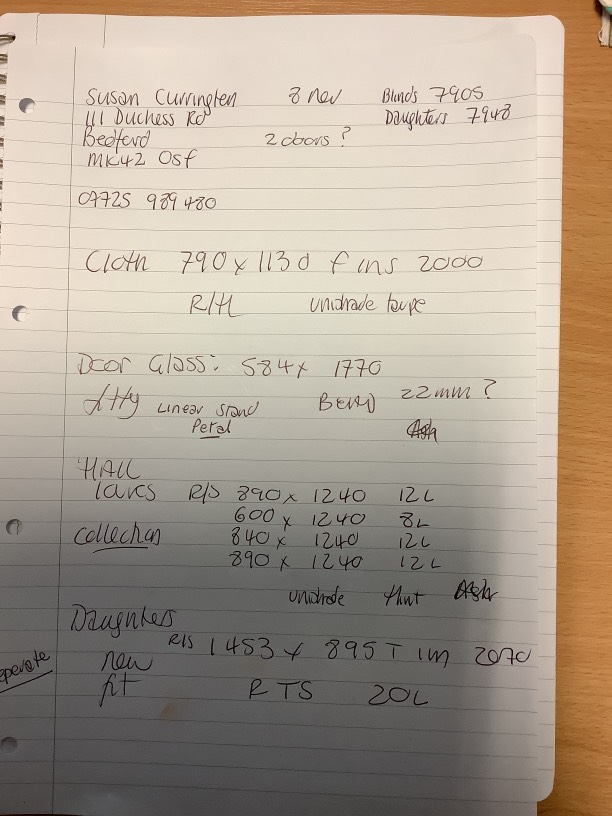 Susan Currington 8 nov Blinds 7905
111 Duchess Rd Daughters 7948
Bedford 2 doors ?
MK42 0sf
07725 989 480
Cloth 790 x 1130 f ins 2000
R/H unishade taupe
Door Glass: 584 x 1770
Linear stand 22mm ?
Petal
HALL
R/S 890 x 1240 12L
600 x 1240 8L
collection 840 x 1240 12L
890 x 1240 12L
unishade
Daughters
R/S 1453 x 895 T 1m 2070
new
fit RTS 20L
seperate